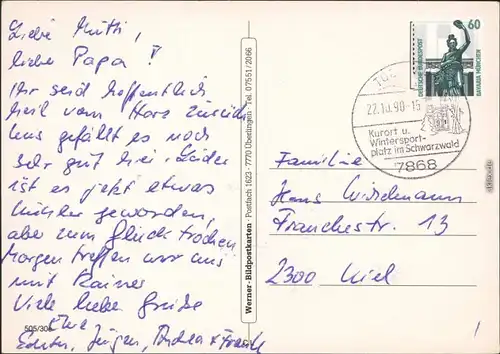 Liebe Mutti,
lieber Papa!
Ihr seid hoffentlich
heil vom Harz zurück.
Uns gefällt es noch
sehr gut hier. Leider
ist es jetzt etwas
kühler geworden,
aber zum Glück trocken.
Morgen treffen wir uns
mit Rainer
Viele liebe Grüße
Eure
Jürgen, Andrea + Frank
505/306
Werner-Bildpostkarten · Postfach 1623 · 7770 Überlingen · Tel. 07551/2066
60
DEUTSCHE BUNDESPOST
BAVARIA MÜNCHEN
22.10.90-15
Kurort u.
Wintersport-
platz im Schwarzwald
7868
Familie
Hans
Franckestr. 13
2300 Kiel